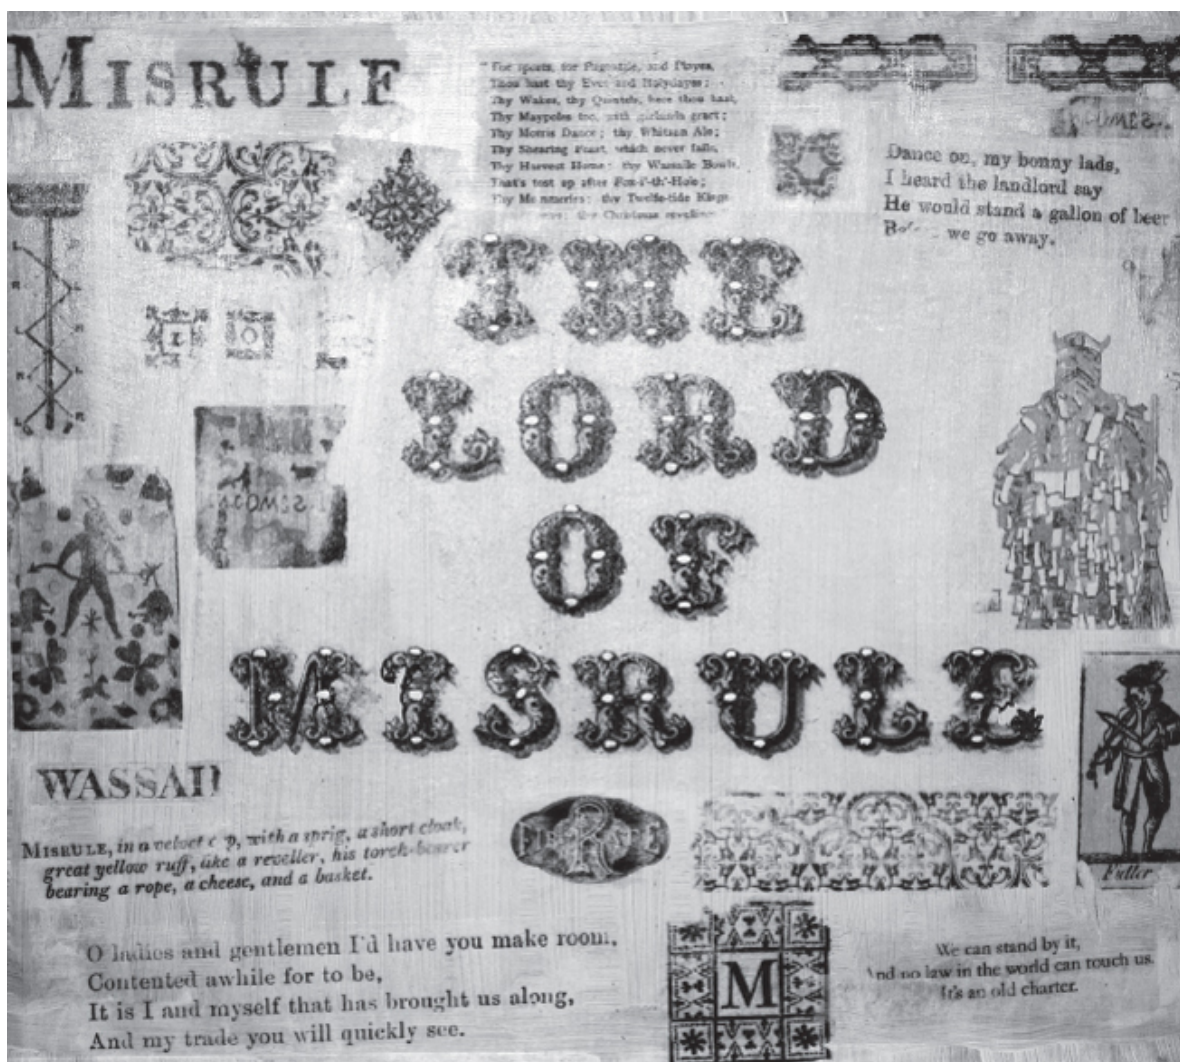 MISRULE
"For sports, for Pagentrie, and Playes,
Thou hast thy Eves and Holydayes;
Thy Wakes, thy Quintels, here thou hast,
Thy Maypoles too, with garlands grac't;
Thy Morris Dance; thy Whitsun Ale;
Thy Shearing Feast, which never faile,
Thy Harvest Home; thy Wassaile Bowle,
That's tost up after Fox-i'-th'-Hole;
Thy Mummeries; thy Twelfe-tide Kings
thy Christmas revellings
Dance on, my bonny lads,
I heard the landlord say
He would stand a gallon of beer
we go away.
THE
LORD
OF
MISRULE
WASSAIL
MISRULE, in a velvet cap, with a sprig, a short cloak,
great yellow ruff, like a reveller, his torch-bearer
bearing a rope, a cheese, and a basket.
Fuller
O ladies and gentlemen I'd have you make room,
Contented awhile for to be,
It is I and myself that has brought us along,
And my trade you will quickly see.
M
We can stand by it,
And no law in the world can touch us.
It's an old charter.